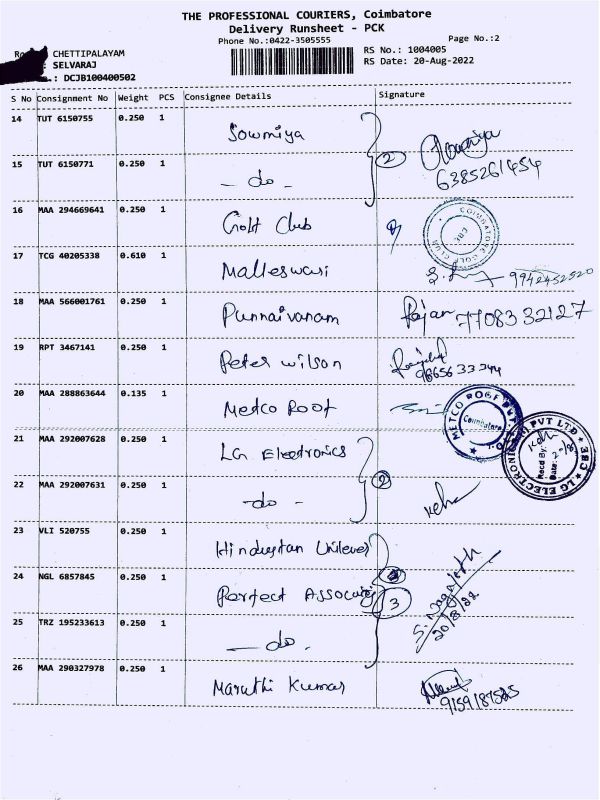 THE PROFESSIONAL COURIERS, Coimbatore
Delivery Runsheet - PCK
Phone No.:0422-3505555
Page No.:2
CHETTIPALAYAM
RS No.: 1004005
: SELVARAJ
RS Date: 20-Aug-2022
.: DCJB100400502
S No Consignment No Weight PCS Consignee Details Signature
14 TUT 6150755 0.250 1 Sowmiya
15 TUT 6150771 0.250 1 - do - 2 6385261454
16 MAA 294669641 0.250 1 Golf Club COIMBATORE GOLF CLUB
17 TCG 40205338 0.610 1 Malleswari 9942452520
18 MAA 566001761 0.250 1 Punnaivanam Rajan 7708332127
19 RPT 3467141 0.250 1 Peter Wilson
20 MAA 288863644 0.135 1 Metco Roof METCO ROOF PVT Coimbatore
21 MAA 292007628 0.250 1 LG Electronics LG ELECTRONICS PVT LTD 383
Recd By:
Date: 20/8
22 MAA 292007631 0.250 1 - do - 2
23 VLI 520755 0.250 1 Hindustan Unilever
24 NGL 6857845 0.250 1 Perfect 3
25 TRZ 195233613 0.250 1 - do - 20/8/22
26 MAA 290327978 0.250 1 Maruthi Kumar